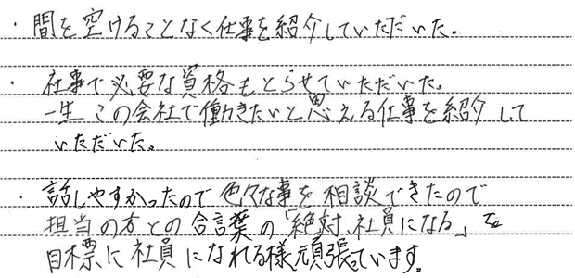 ・間を空けることなく仕事を紹介していただいた。
・仕事で必要な資格もとらせていただいた。
一生この会社で働きたいと思える仕事を紹介して
いただいた。
・話しやすかったので色々な事を相談できたので
担当の方との合言葉の「絶対、社員になる」を
目標に社員になれる様頑張っています。